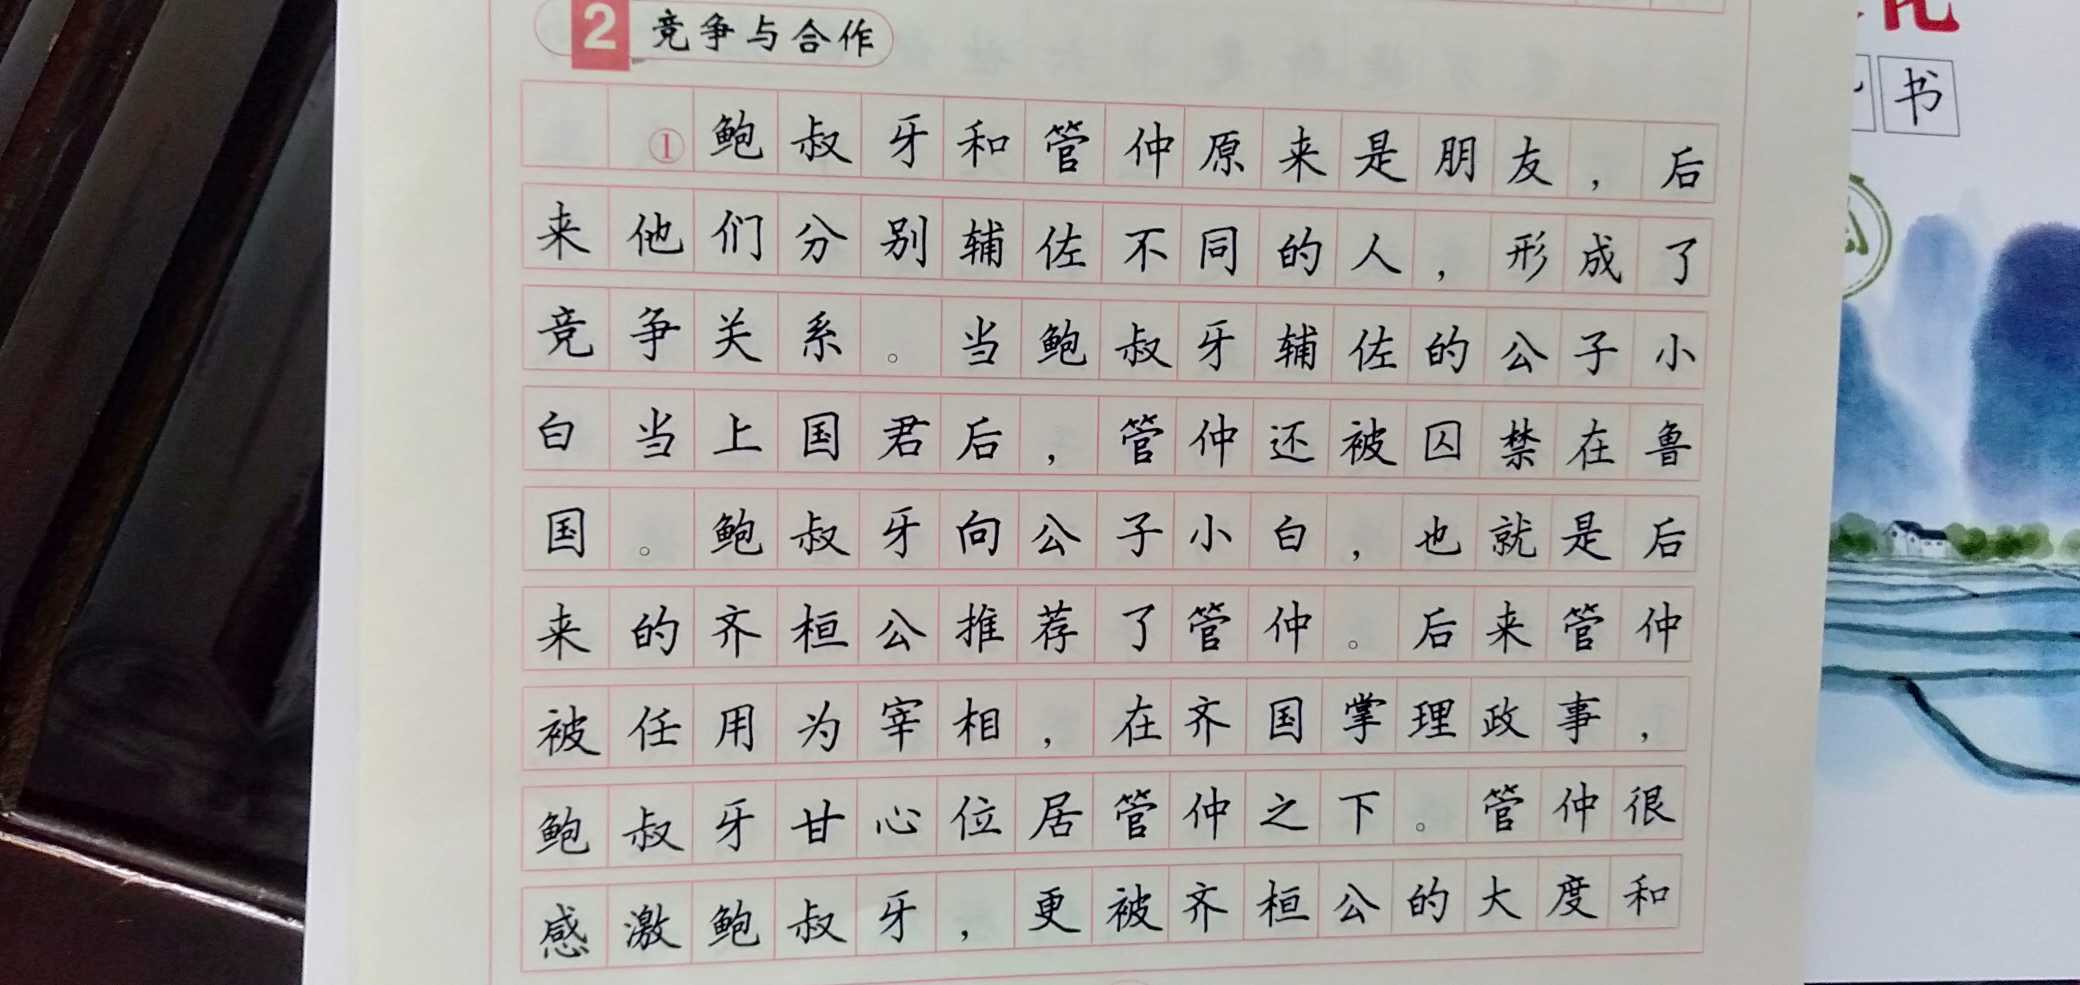 2 竞争与合作
①鲍叔牙和管仲原来是朋友，后
来他们分别辅佐不同的人，形成了
竞争关系。当鲍叔牙辅佐的公子小
白当上国君后，管仲还被囚禁在鲁
国。鲍叔牙向公子小白，也就是后
来的齐桓公推荐了管仲。后来管仲
被任用为宰相，在齐国掌理政事，
鲍叔牙甘心位居管仲之下。管仲很
感激鲍叔牙，更被齐桓公的大度和
书